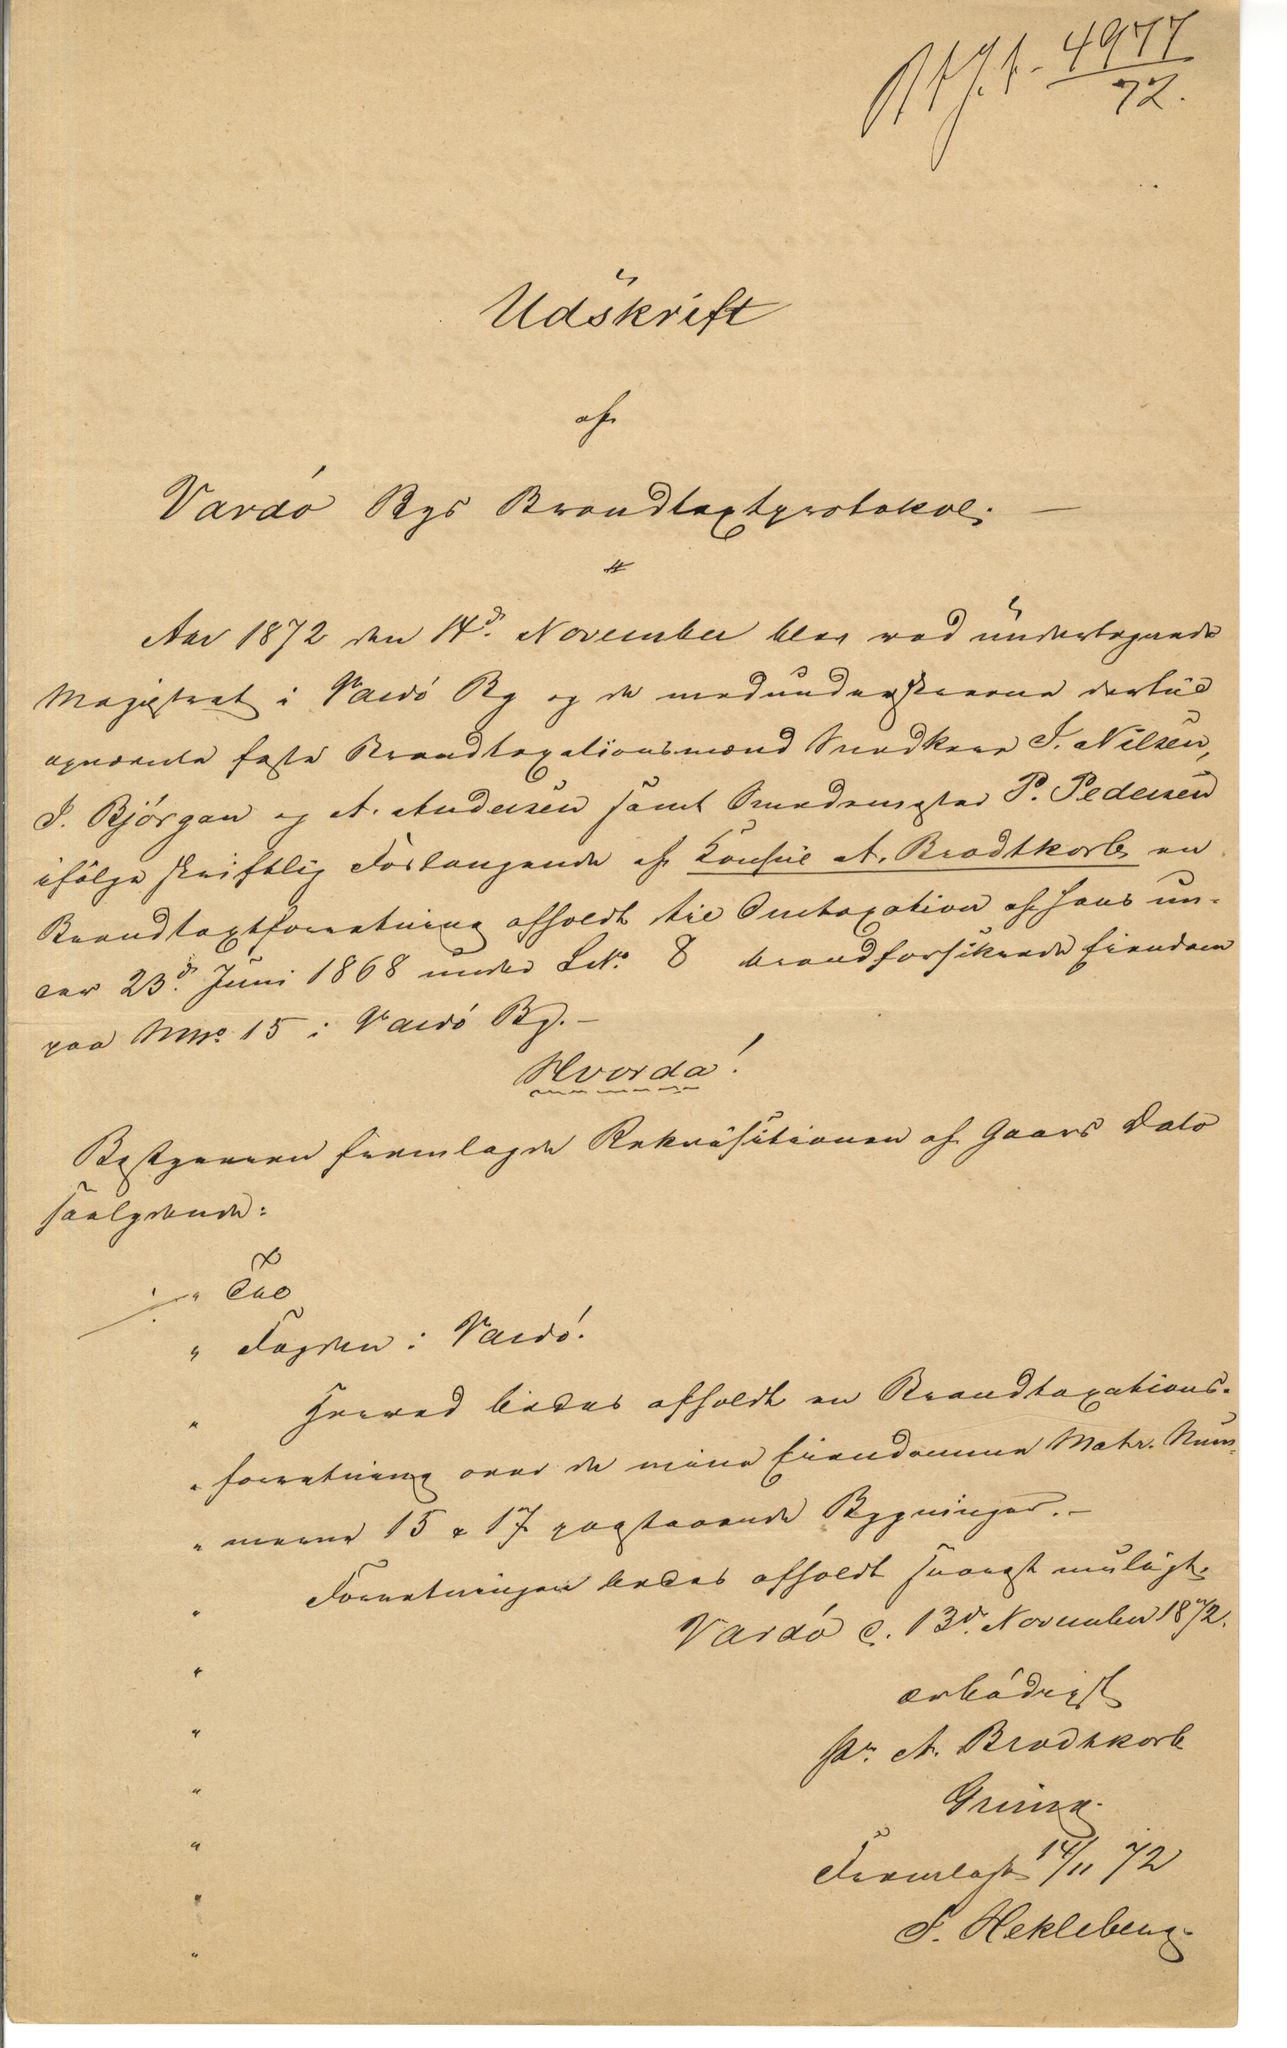 4977
72.
Udskrift
af
Vardö Bys Brandtaxtprotokol. —
Aar 1872 den 14d. November blev ved undertegnede
Magistrat i Vardö By og de medunderskrevne dertil
opnævnte faste Brandtaxationsmænd Snedkere J. Nilsen,
J. Björgan og A. Andersen samt Smedemester P. Pedersen
ifölge skriftlig Forlangende af Konsul A. Brodtkorb en
Brandtaxtforretning afholdt til Omtaxation af hans un-
der 23d. Juni 1868 under Lit. 8 brandforsikrede Eiendom
paa Mno. 15 i Vardö By. —
Hvorda!
Bestyreren fremlagde Rekvisitionen af Gaars Dato
saalydende:
" Til
" Fogden i Vardö.
" Herved bedes afholdt en Brandtaxations-
" forretning over de mine Eiendomme Matr. Num-
" merne 15 & 17 paastaaende Bygninger. —
" Forretningen bedes afholdt snarest muligt.
" Vardö d. 13de November 1872.
" ærbödigst
" pr. A. Brodtkorb
"
" Fremlagt 14/11 72
" F. Hekleberg.